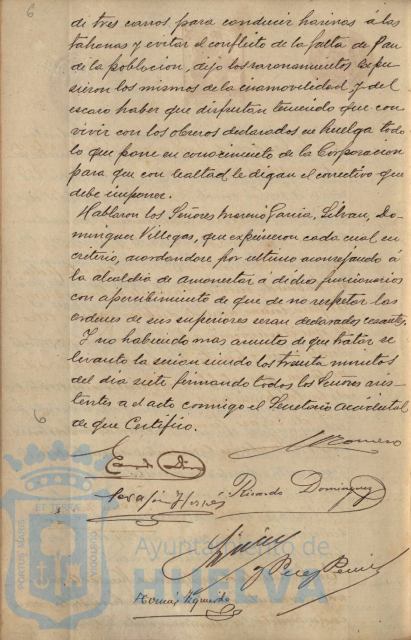 6
de tres carros para conducir harinas á las
tahonas y evitar el conflicto de la falta de pan
de la poblacion, dijo los razonamientos expu
sieron los mismos de la inamovilidad y del
escaso haber que disfrutan teniendo que con
vivir con los obreros declarados en huelga todo
lo que pone en conocimiento de la Corporacion
para que con lealtad le digan el correctivo que
debe imponer.
Hablaron los Señores Moreno Garcia, Do
minguez Villegas, que expusieron cada cual su
criterio, acordandose por ultimo aconsejando á
la alcaldia de amonestar á dichos funcionarios
con apercibimiento de que de no respetar las
ordenes de sus superiores seran declarados cesantes.
Y no habiendo mas asuntos de que tratar se
levanto la sesion siendo los treinta minutos
del dia siete firmando todos los Señores asis
tentes al acto conmigo el Secretario accidental
de que Certifico.
6
Romero
Ricardo Dominguez
y Perez
Tomás Izquierdo
PORTUS MARIS
ET TERRÆ
CUSTODIA
Ayuntamiento de
HUELVA